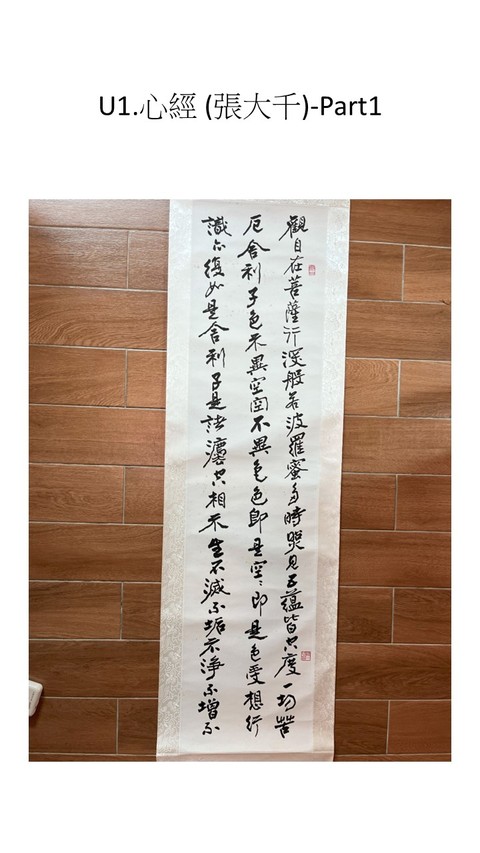 U1.心經 (張大千)-Part1
觀自在菩薩行深般若波羅蜜多時照見五蘊皆空度一切苦
厄舍利子色不異空空不異色色即是空〻即是色受想行
識亦復如是舍利子是諸灋空相不生不滅不垢不淨不增不